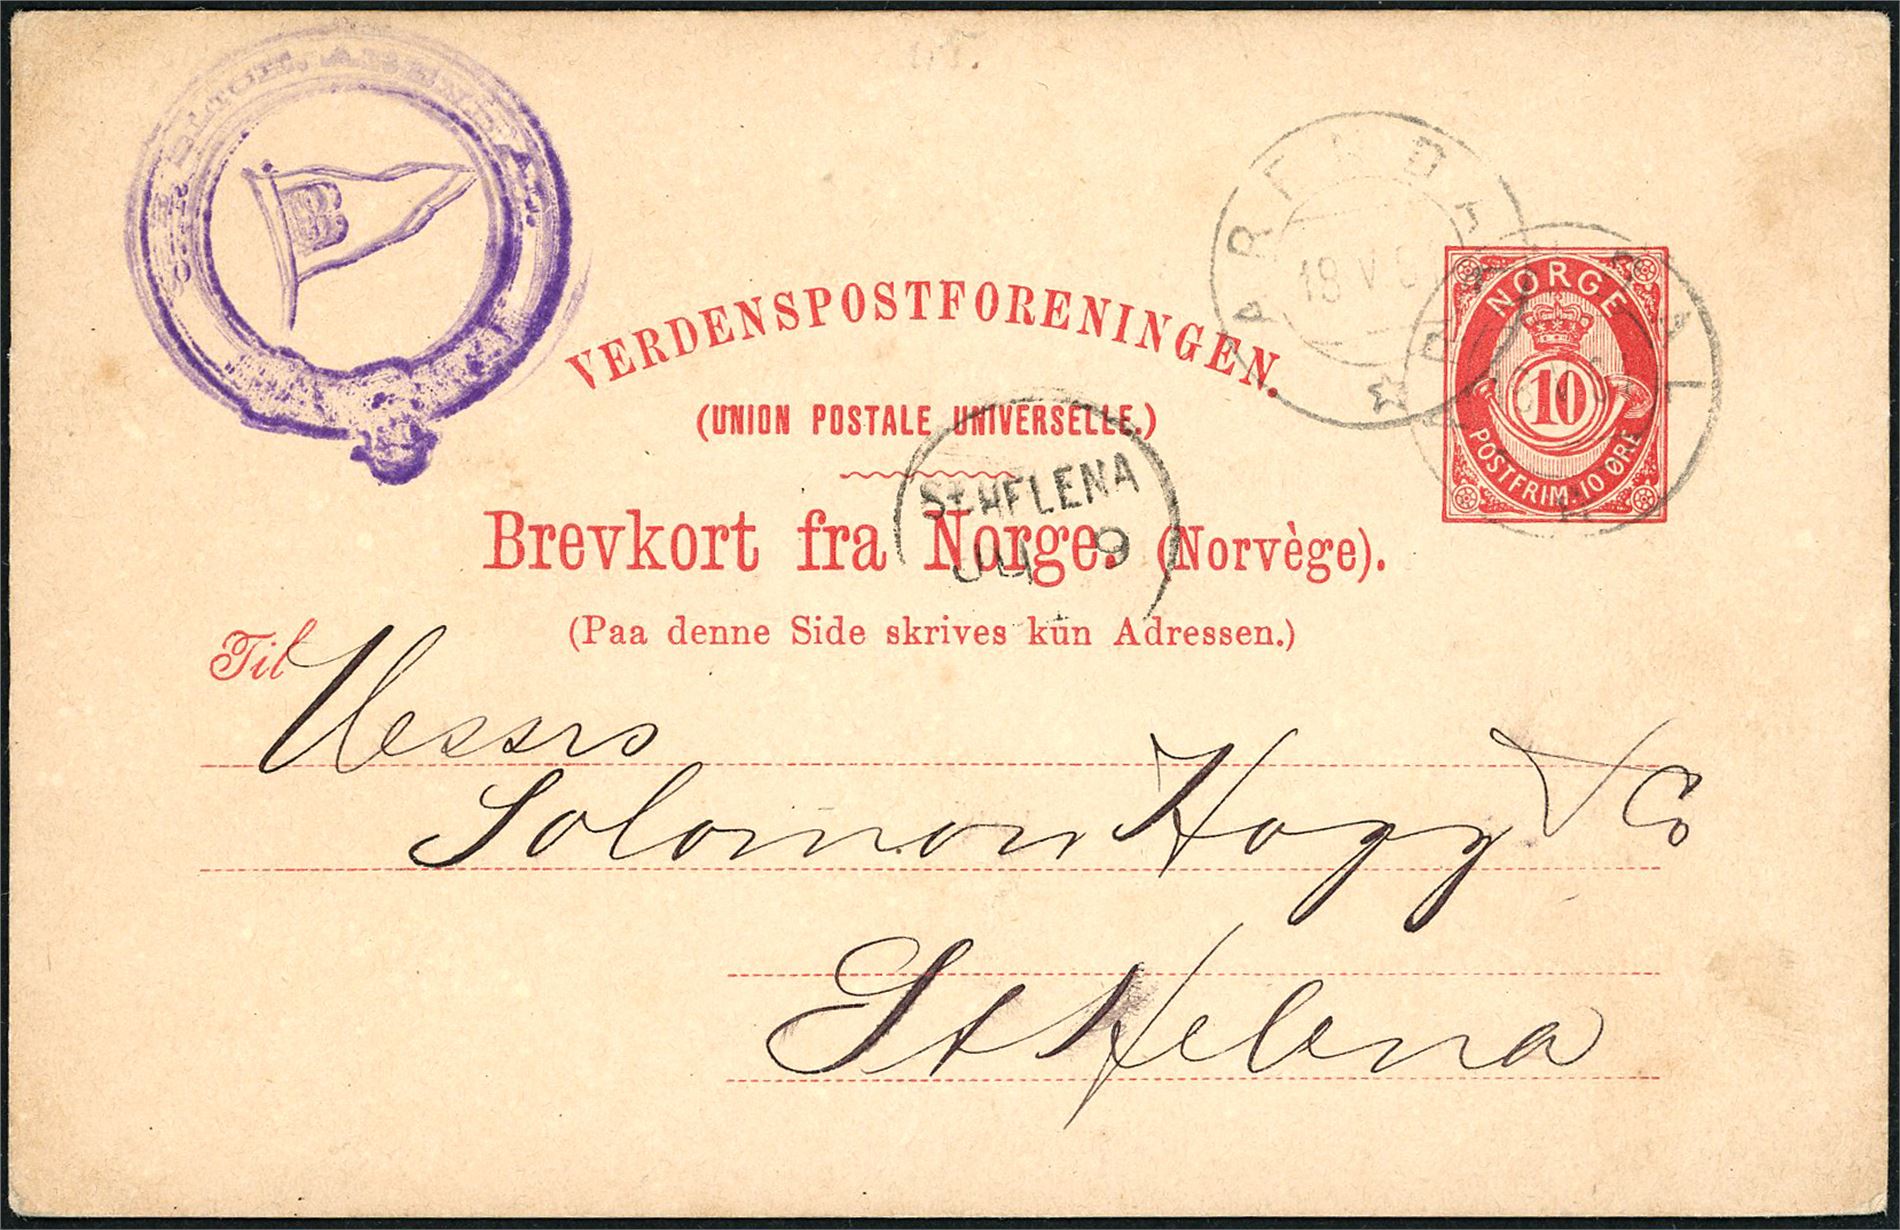 ARENDAL
18 V
NORGE
10
POSTFRIM. 10 ØRE
VERDENSPOSTFORENINGEN.
(UNION POSTALE UNIVERSELLE.)
St HELENA
9
Brevkort fra Norge. (Norvège).
(Paa denne Side skrives kun Adressen.)
Til Messrs
Solomon Hogg & Co
St Helena